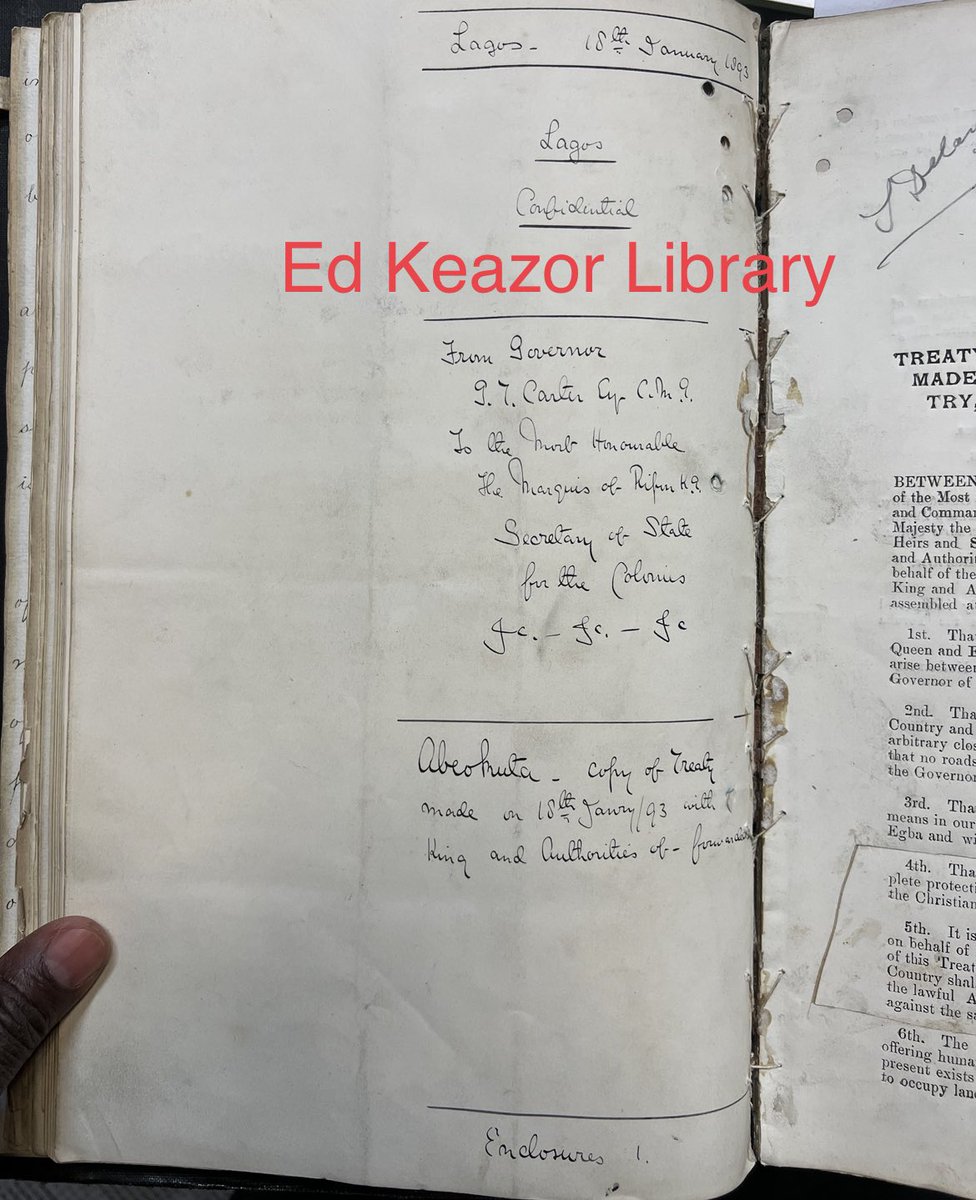 Lagos - 18th January 1893
Lagos
Confidential
Ed Keazor Library
From Governor
G. T. Carter Esq. C.M.G.
To the Most Honourable
The Marquis of Ripon K.G.
Secretary of State
for the Colonies
&c. - &c. - &c
Abeokuta - copy of Treaty
made on 18th Janry/93 with
King and Authorities of - forwarded
Enclosures 1.
TREATY
MADE
TRY,
BETWEEN
of the Most
and Comman
Majesty the
Heirs and S
and Authorit
behalf of the
King and A
assembled a
1st. Tha
Queen and E
arise between
Governor of
2nd. Tha
Country and
arbitrary clos
that no roads
the Governor
3rd. Tha
means in our
Egba and wi
4th. Tha
plete protecti
the Christian
5th. It is
on behalf of
of this Treat
Country shal
the lawful A
against the sa
6th. The
offering huma
present exists
to occupy lan